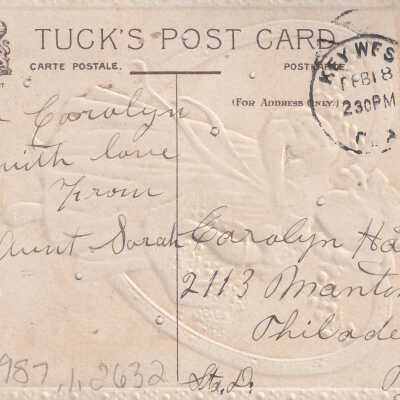 TUCK'S POST CARD
CARTE POSTALE.
(FOR ADDRESS ONLY.)
KEY WES
FEB 18
230PM
Carolyn
with love
From
Aunt Sarah
Carolyn Ha
2113 Manto
Philade
Sta. D.
987
2632